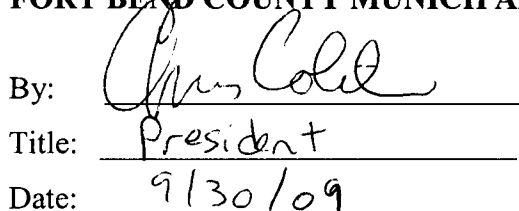 FORT BEND COUNTY MUNICIPA
By:
Title: President
Date: 9/30/09